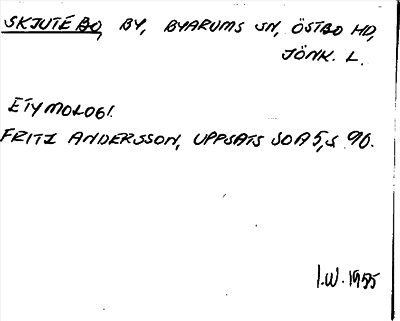 SKJUTEBO, BY, BYARUMS SN, ÖSTBO HD,
JÖNK. L.
ETYMOLOGI.
FRITZ ANDERSSON, UPPSATS SOA5, S 90.
I.W. 1955